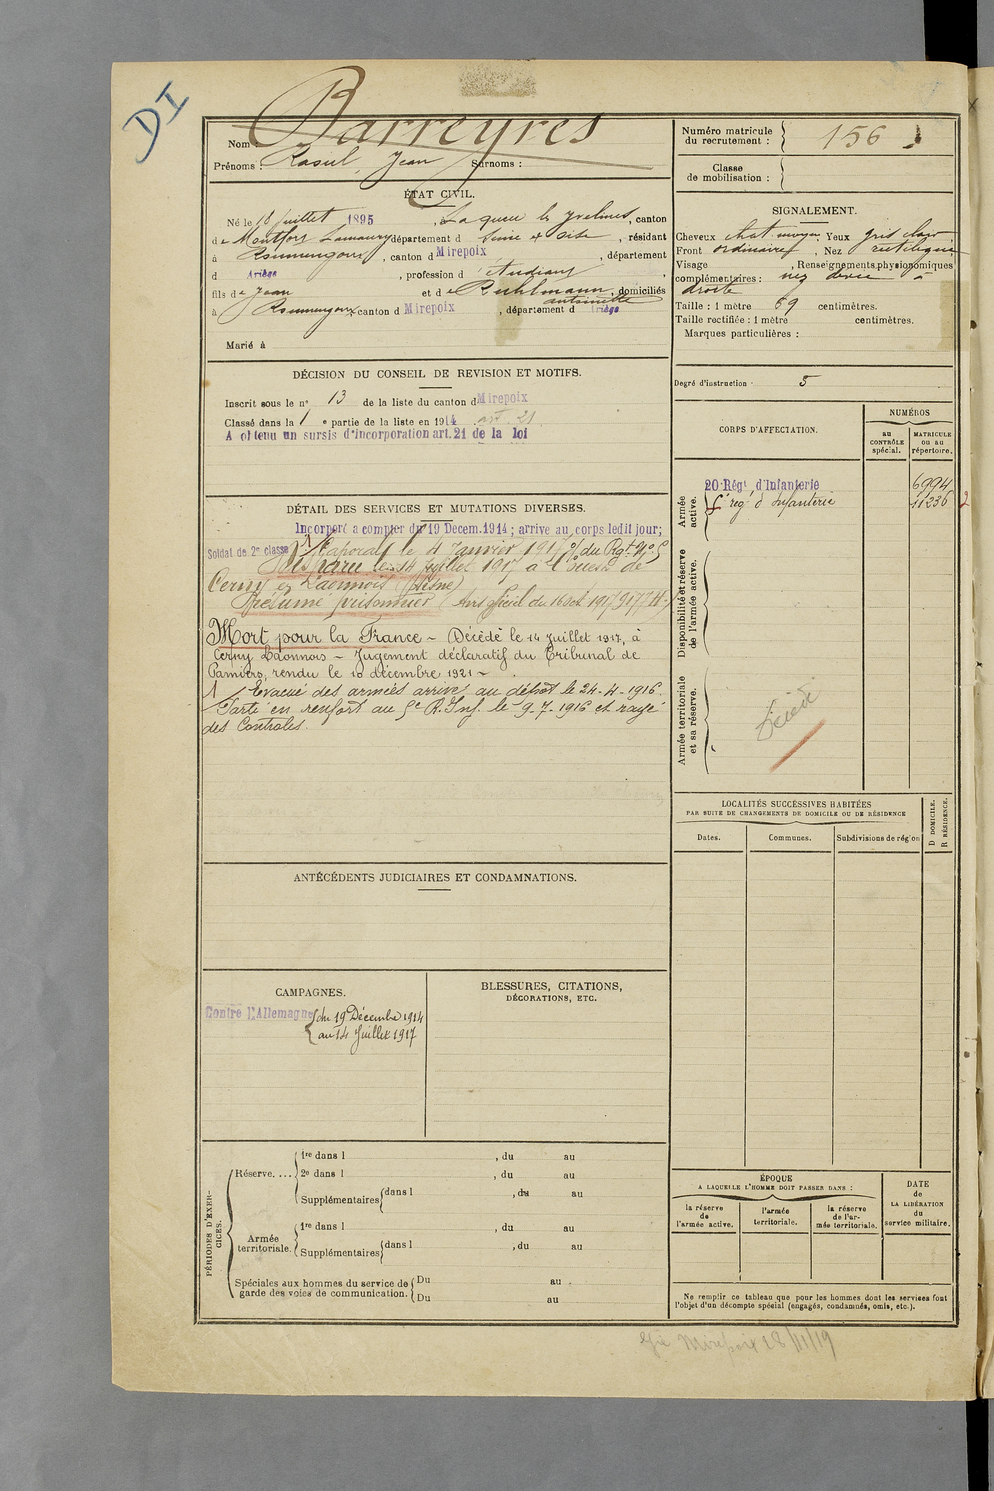 DI
Nom Barreyres
Prénoms : Raoul Jean Surnoms :
Numéro matricule du recrutement : 156
Classe de mobilisation :
ÉTAT CIVIL.
Né le 18 juillet 1895, La queue les Yvelines, canton
de Montfort Lamaury département d Seine et Oise, résidant
à, canton d Mirepoix, département
d Ariège, profession d étudiant,
fils de Jean et de Ruhlmann antoinette, domiciliés
à canton d Mirepoix, département d Ariège
Marié à
SIGNALEMENT.
Cheveux chat moyen, Yeux gris clair
Front ordinaire, Nez rectiligne
Visage, Renseignements physionomiques
complémentaires : nez dévié à
droite
Taille : 1 mètre 69 centimètres.
Taille rectifiée : 1 mètre centimètres.
Marques particulières :
DÉCISION DU CONSEIL DE REVISION ET MOTIFS.
Inscrit sous le n° 13 de la liste du canton d Mirepoix
Classé dans la 1e partie de la liste en 1914 art. 21
A obtenu un sursis d'incorporation art. 21 de la loi
Degré d'instruction : 5
CORPS D'AFFECTATION.
NUMÉROS
au CONTRÔLE spécial.
MATRICULE ou au répertoire.
Armée active.
20 Régt d'Infanterie 6994
5e rég d'Infanterie 11236 2
Disponibilité et réserve de l'armée active.
Armée territoriale et sa réserve.
Décédé
DÉTAIL DES SERVICES ET MUTATIONS DIVERSES.
Incorporé a compter du 19 Decem. 1914 ; arrive au corps ledit jour;
Soldat de 2e classe Caporal le 4 Janvier 1917 du Rgt No 5
Disparu le 14 juillet 1917 à l'Ouest de
Cerny en Laonnois (Aisne)
Présumé prisonnier (Avis officiel du 16 oct. 1917
Mort pour la France - Décédé le 14 Juillet 1917, à
Cerny Laonnois - Jugement déclaratif du Tribunal de
Pamiers, rendu le 10 décembre 1921 -
1 Evacué des armées arrivé au dépôt le 24-4-1916.
Parti en renfort au 5e R. Inf. le 9-7-1916 et rayé
des Contrôles.
LOCALITÉS SUCCESSIVES HABITÉES
PAR SUITE DE CHANGEMENTS DE DOMICILE OU DE RÉSIDENCE
Dates.
Communes.
Subdivisions de région
D DOMICILE.
R RÉSIDENCE.
ANTÉCÉDENTS JUDICIAIRES ET CONDAMNATIONS.
CAMPAGNES.
Contre l'Allemagne du 19 Décembre 1914
au 14 Juillet 1917
BLESSURES, CITATIONS,
DÉCORATIONS, ETC.
PÉRIODES D'EXERCICES.
Réserve....
1re dans l, du au
2e dans l, du au
Supplémentaires dans l, du au
Armée territoriale.
1re dans l, du au
Supplémentaires dans l, du au
Spéciales aux hommes du service de garde des voies de communication.
Du au
Du au
ÉPOQUE
A LAQUELLE L'HOMME DOIT PASSER DANS :
la réserve de l'armée active.
l'armée territoriale.
la réserve de l'armée territoriale.
DATE de LA LIBÉRATION du service militaire.
Ne remplir ce tableau que pour les hommes dont les services font
l'objet d'un décompte spécial (engagés, condamnés, omis, etc.).
Gie Mirepoix 28/11/19